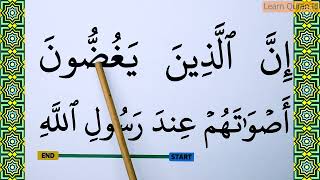 Learn Quran id
إِنَّ ٱلَّذِينَ يَغُضُّونَ
أَصْوَٰتَهُمْ عِندَ رَسُولِ ٱللَّهِ
END START